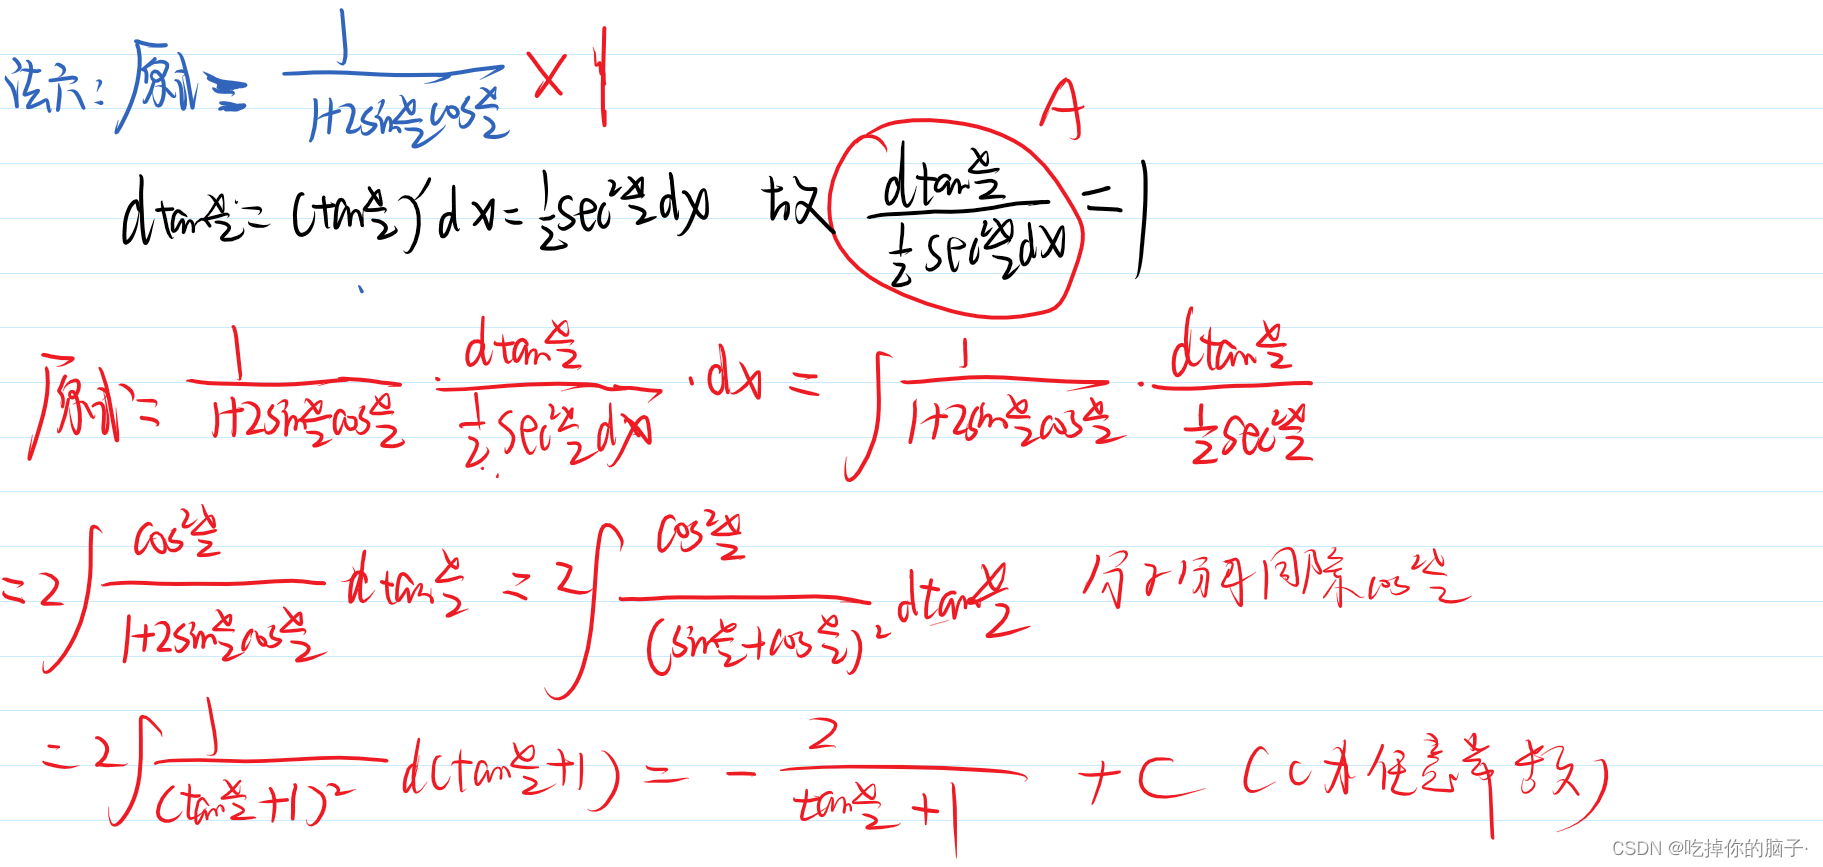 法六：原式= 1/(1+2sin x/2 cos x/2) × 1
A
dtan x/2 = (tan x/2)′dx = 1/2 sec² x/2 dx 故 (dtan x/2)/(1/2 sec² x/2 dx) = 1
原式= 1/(1+2sin x/2 cos x/2) · (dtan x/2)/(1/2 sec² x/2 dx) · dx = ∫ 1/(1+2sin x/2 cos x/2) · (dtan x/2)/(1/2 sec² x/2)
= 2∫ (cos² x/2)/(1+2sin x/2 cos x/2) dtan x/2 = 2∫ (cos² x/2)/(sin x/2 + cos x/2)² dtan x/2 分子分母同除cos² x/2
= 2∫ 1/(tan x/2 +1)² d(tan x/2 +1) = - 2/(tan x/2 +1) + C (C为任意常数)
CSDN @吃掉你的脑子·